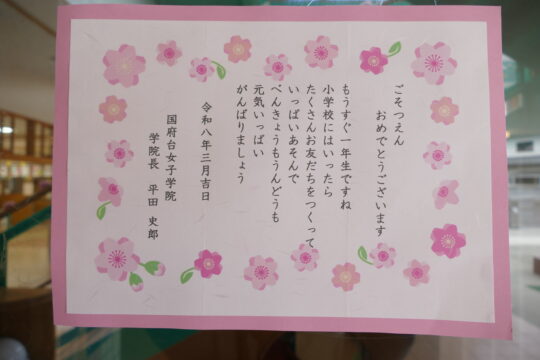 ごそつえん
おめでとうございます
もうすぐ一年生ですね
小学校にはいったら
たくさんお友だちをつくって
いっぱいあそんで
べんきょうもうんどうも
元気いっぱい
がんばりましょう
令和八年三月吉日
国府台女子学院
学院長 平田 史郎